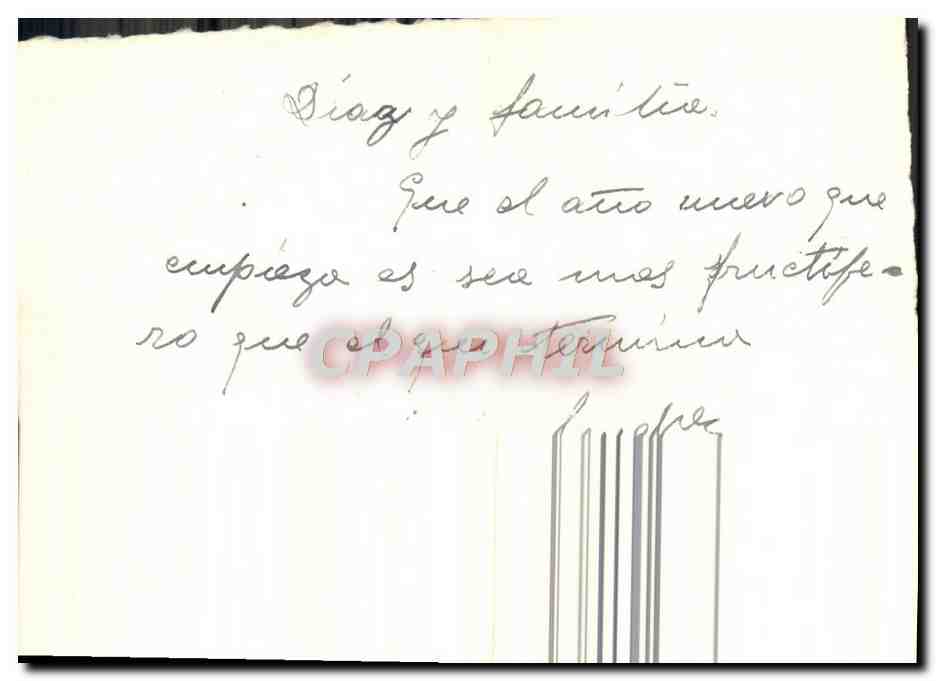 Diaz y familia.
Que el año nuevo que
empieza os sea mas fructife-
ro que el que termina
CPAPHIL